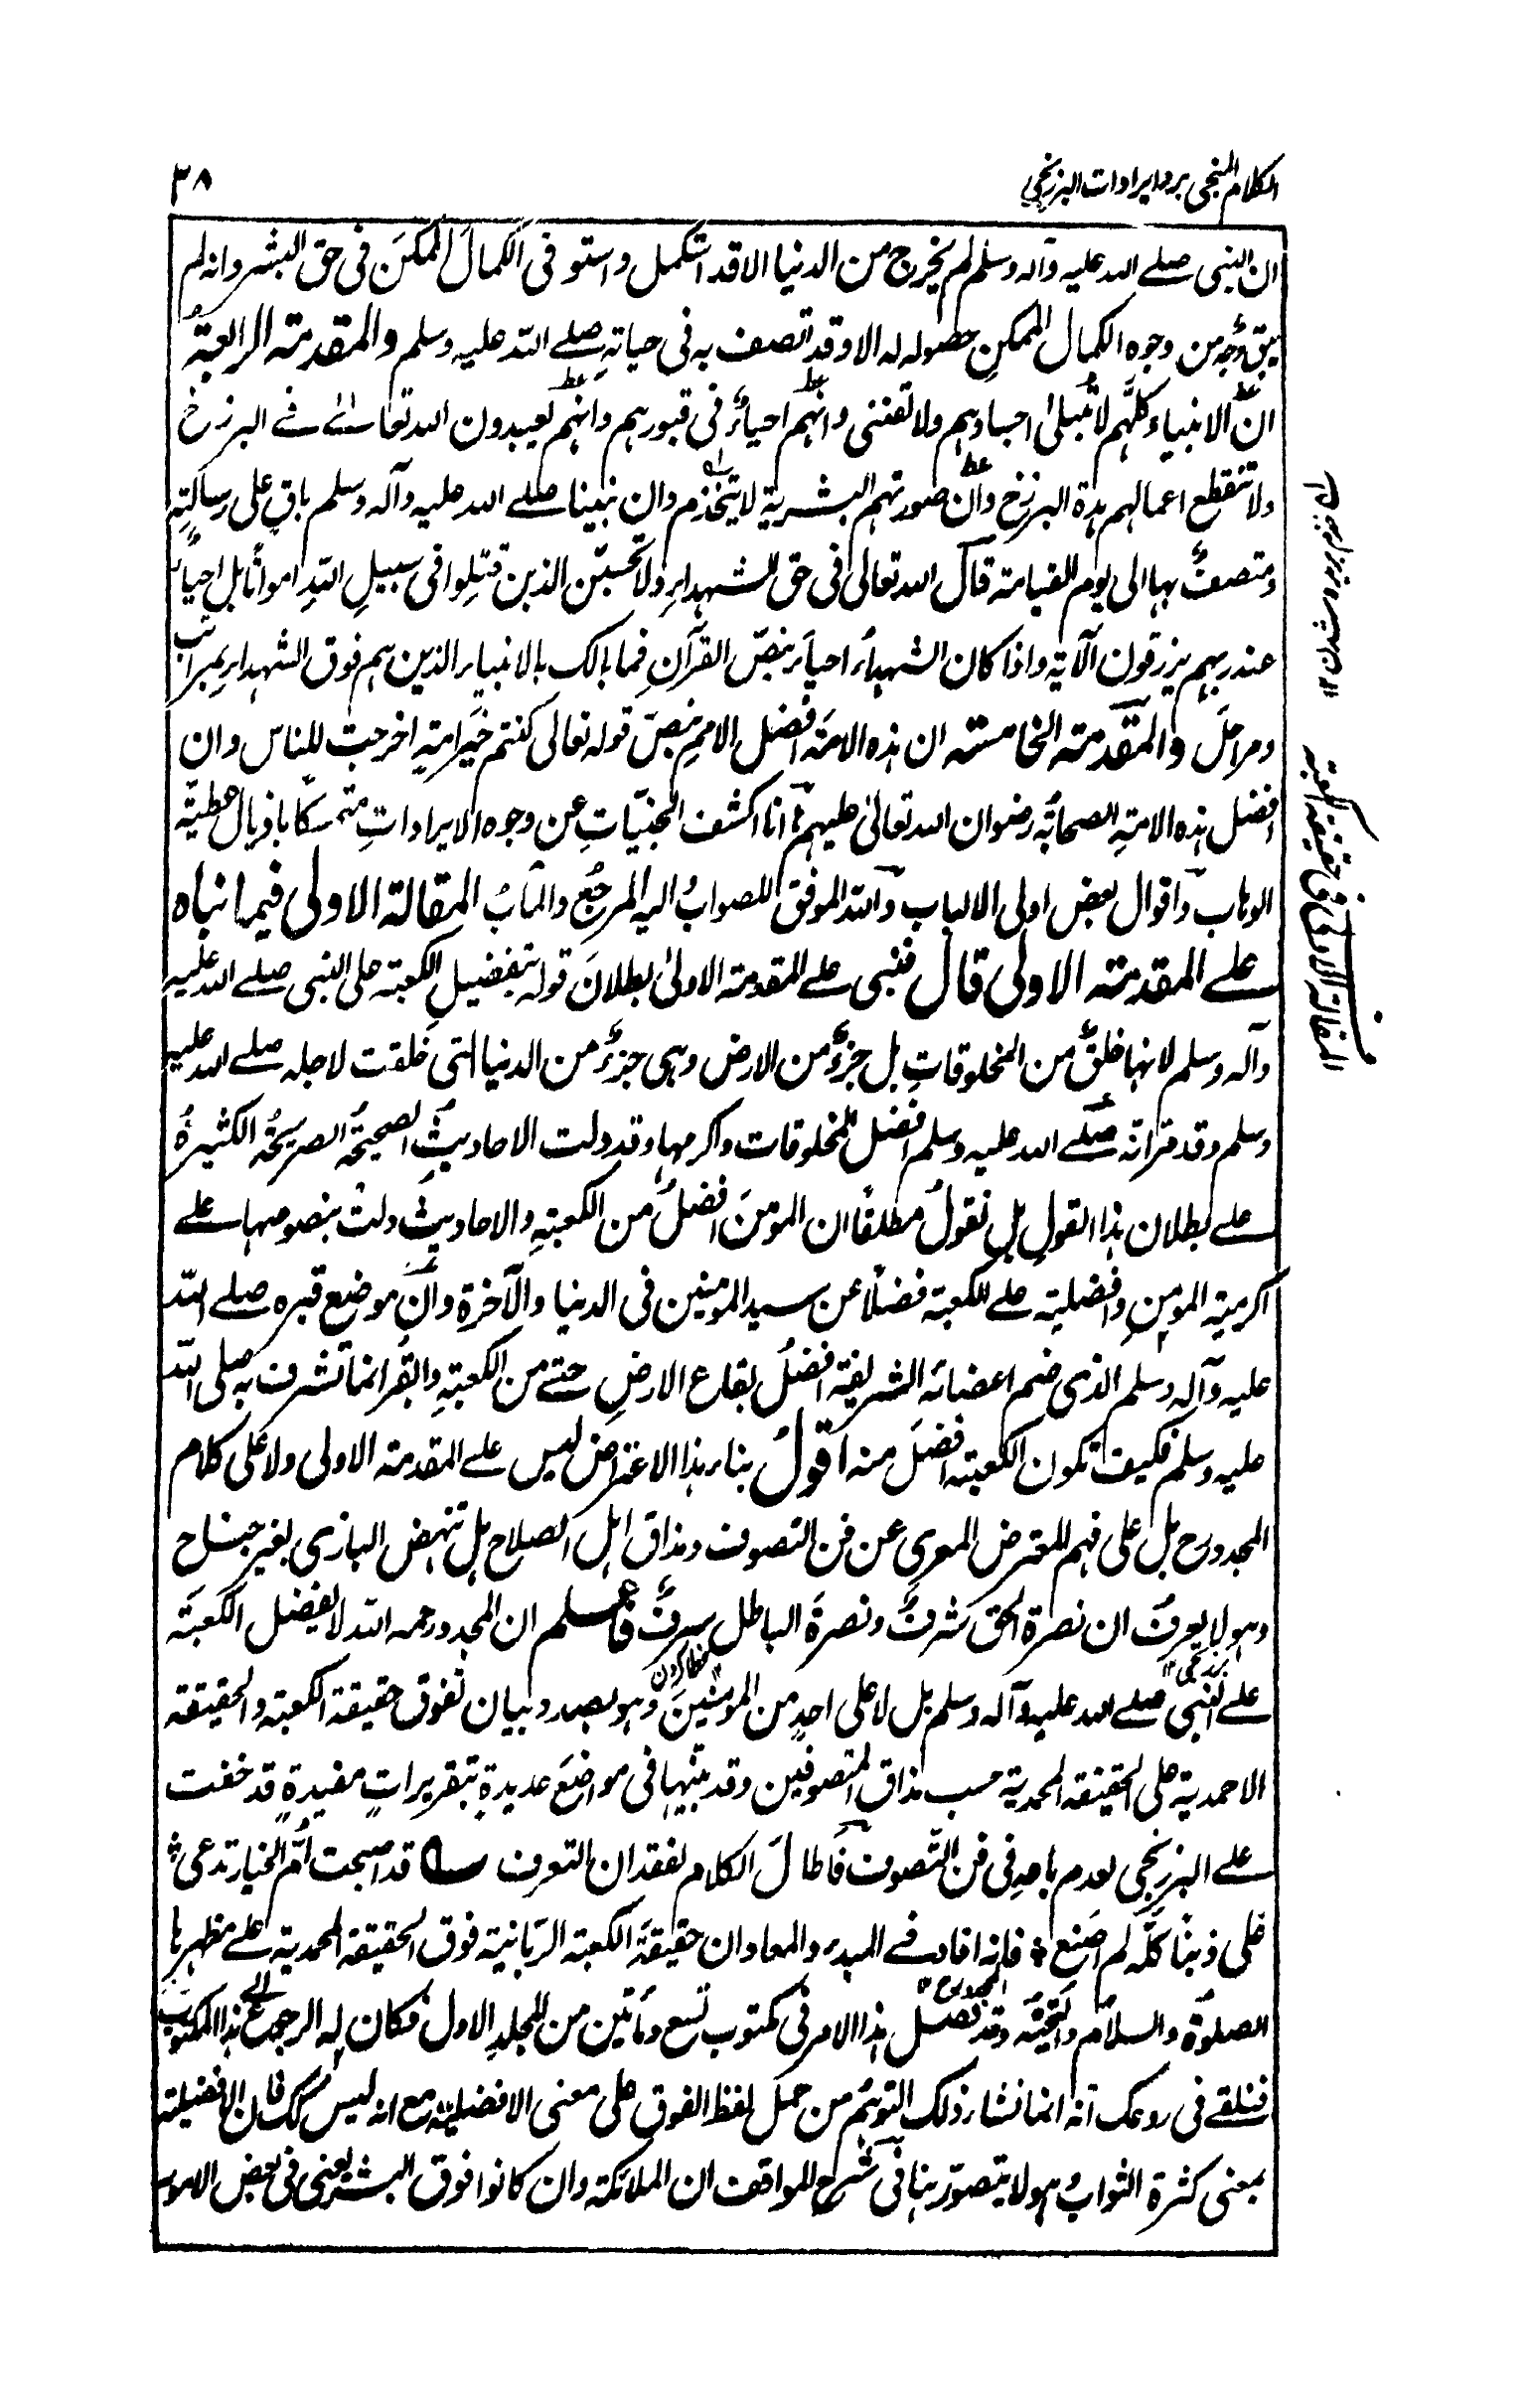 الكلام المنجي برد ايرادات البرزنجي
٣٨
ان النبي صلے الله عليه وآله وسلم لم يخرج من الدنيا الا قد استكمل واستوفى الكمالَ الممكنَ فى حق البشر وانه لم
يبق وجه من وجوه الكمال الممكنِ حصوله له الا وقد اتصف به فى حياته صلے الله عليه وسلم والمقدمة الرابعة
ان الانبياء كلَّهم لا تُبلىٰ اجسادهم ولا تفنىٰ وانَّهم احياءٌ فى قبورهم وانَّهم يعبدون الله تعالىٰ فے البرزخ
ولا تنقطع اعمالهم مدة البرزخ وان صورتهم البشرية لا يتخذم وان نبينا صلے الله عليه وآله وسلم باقٍ على رسالتِهٖ
ومتصفٌ بها الى يوم القيامة قال الله تعالى فى حق الشهداءِ ولا تحسبّن الذين قُتِلوا فى سبيلِ اللهِ امواتًا بل احياءٌ
عند ربهم يرزقون الآية واذا كان الشهداءُ احياءً بنصّ القرآنِ فما بالك بالانبياء الذين هم فوق الشهداءِ بمراتب
ومراحلَ والمقدمة الخامسة ان هذه الامةَ افضل الاممِ بنصّ قوله تعالى كنتم خيرَ امةٍ اخرجت للناس وان
افضل هذه الامةِ الصحابةُ رضوان الله تعالىٰ عليهم ؛ انا اكشف المخبيّاتِ عن وجوه الايراداتِ متمسكًا باذيال عطية
الوهاب واقوال بعض اولى الالباب والله الموفق للصوابُ اليه المرجعُ والمآبُ المقالة الاولى فيما انباه
علے المقدمة الاولى قال فنبى علے المقدمة الاولىٰ بطلانَ قوله بتفضيلِ الكعبة على النبى صلے الله عليه
وآله وسلم لانها خلقٌ من المخلوقاتِ بل جزءٌ من الارض وهى جزءٌ من الدنيا التى خلقت لاجله صلے الله عليه
وسلم وقد مرّ انه صلے الله عليه وسلم افضل المخلوقات واكرمها وقد دلت الاحاديثُ الصحيحةُ الصريحةُ الكثيرةُ
علے بطلان هذا القولِ بل نقولُ مطلقًا ان المؤمنَ افضلُ من الكعبةِ والاحاديثِ دلت بنصوصها علے
اكرمية المؤمنِ وافضليته علے الكعبة فضلًا عن سيد المؤمنين فى الدنيا والآخرة وان موضع قبره صلے الله
عليه وآله وسلم الذى ضم اعضائه الشريفة افضلُ بقاع الارضِ حتے من الكعبةِ والقبر انما تشرف به صلى الله
عليه وسلم فكيف تكون الكعبة افضلَ منه اقولُ بناء هذا الاعتراض ليس علے المقدمة الاولى ولا على كلام
المجدد رح بل على فهم المعترض المعرى عن فن التصوف ومذاق اهل الصلاح هل تنهض البازى بغير جناح
وهو لا يعرفُ ان نصرة الحق شرفٌ ونصرةَ الباطل سرفٌ فاعلم ان المجدد رحمه الله لا يفضل الكعبةَ
علے النبى صلے الله عليه وآله وسلم بل لا على احدٍ من المؤمنينَ وهو بصدد بيان تفوق حقيقة الكعبة والحقيقة
الاحمدية على الحقيقة المحمدية حسب مذاق المتصوفين وقد بيّنها فى مواضعَ عديدةٍ بتقريراتٍ مفيدةٍ قد خفت
علے البرزنجى لعدم باعه فى فن التصوف فاطالَ الكلام لفقدان التعرف قد اصبحت اُمّ الخيار تدعى
على ذنبًا كلَّه لم اصنع فانه افاد فے المبدء والمعاد ان حقيقةَ الكعبة الربانية فوق الحقيقة المحمدية علے مظهرها
الصلوٰة والسلام والتحية وقد فصل هذا الامر فى مكتوب تسع ومأتين من المجلدِ الاول فكان له الرجوع الى هذا المكتوب
فنلقے فى روعك انه انما نشاء ذلك التوهم من حمل لفظ الفوق على معنى الافضلية مع انه ليس كك فان الافضلية
بمعنى كثرة الثوابُ هو لا يتصوّر هنا فى شرح المواقف ان الملائكة وان كانوا فوق البشر يعنى فى بعض الامور
المقالة الاولى فى حقيقة الكعبة